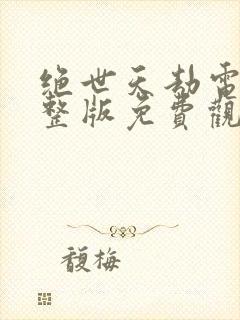 绝世天劫雷
整版免費觀
馥梅